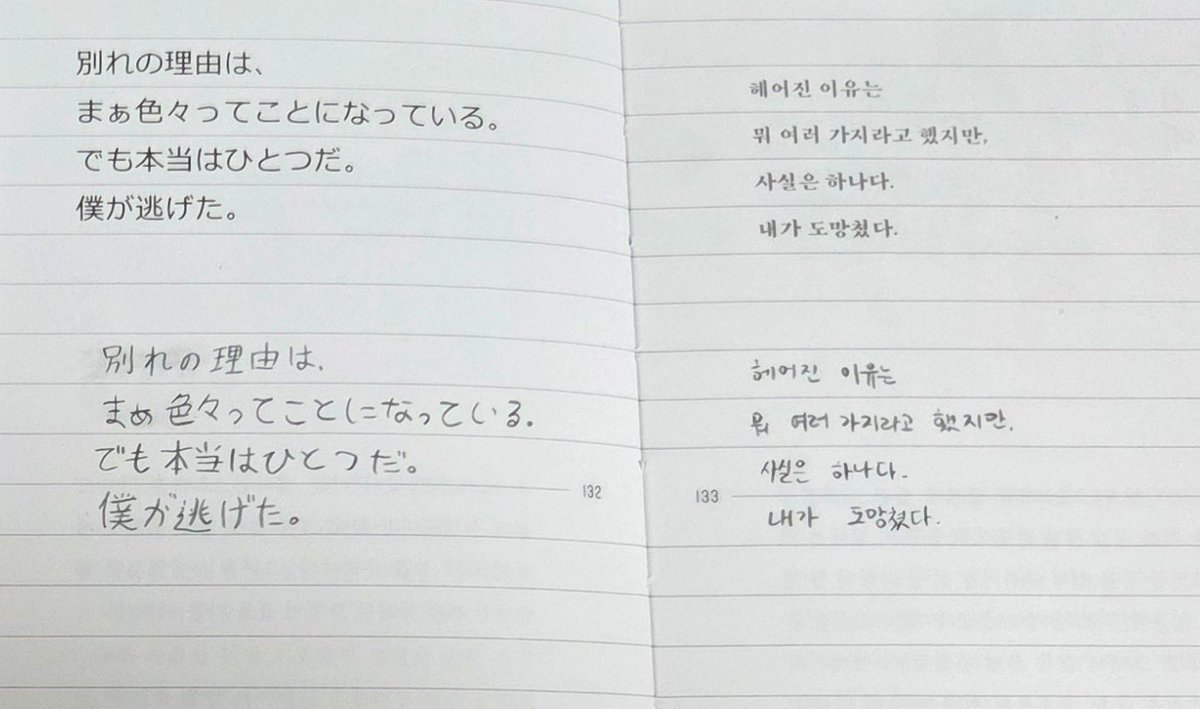 別れの理由は、
まぁ色々ってことになっている。
でも本当はひとつだ。
僕が逃げた。
別れの理由は、
まぁ色々ってことになっている。
でも本当はひとつだ。
僕が逃げた。
132
헤어진 이유는
뭐 여러 가지라고 했지만,
사실은 하나다.
내가 도망쳤다.
헤어진 이유는
뭐 여러 가지라고 했지만,
사실은 하나다.
내가 도망쳤다.
133